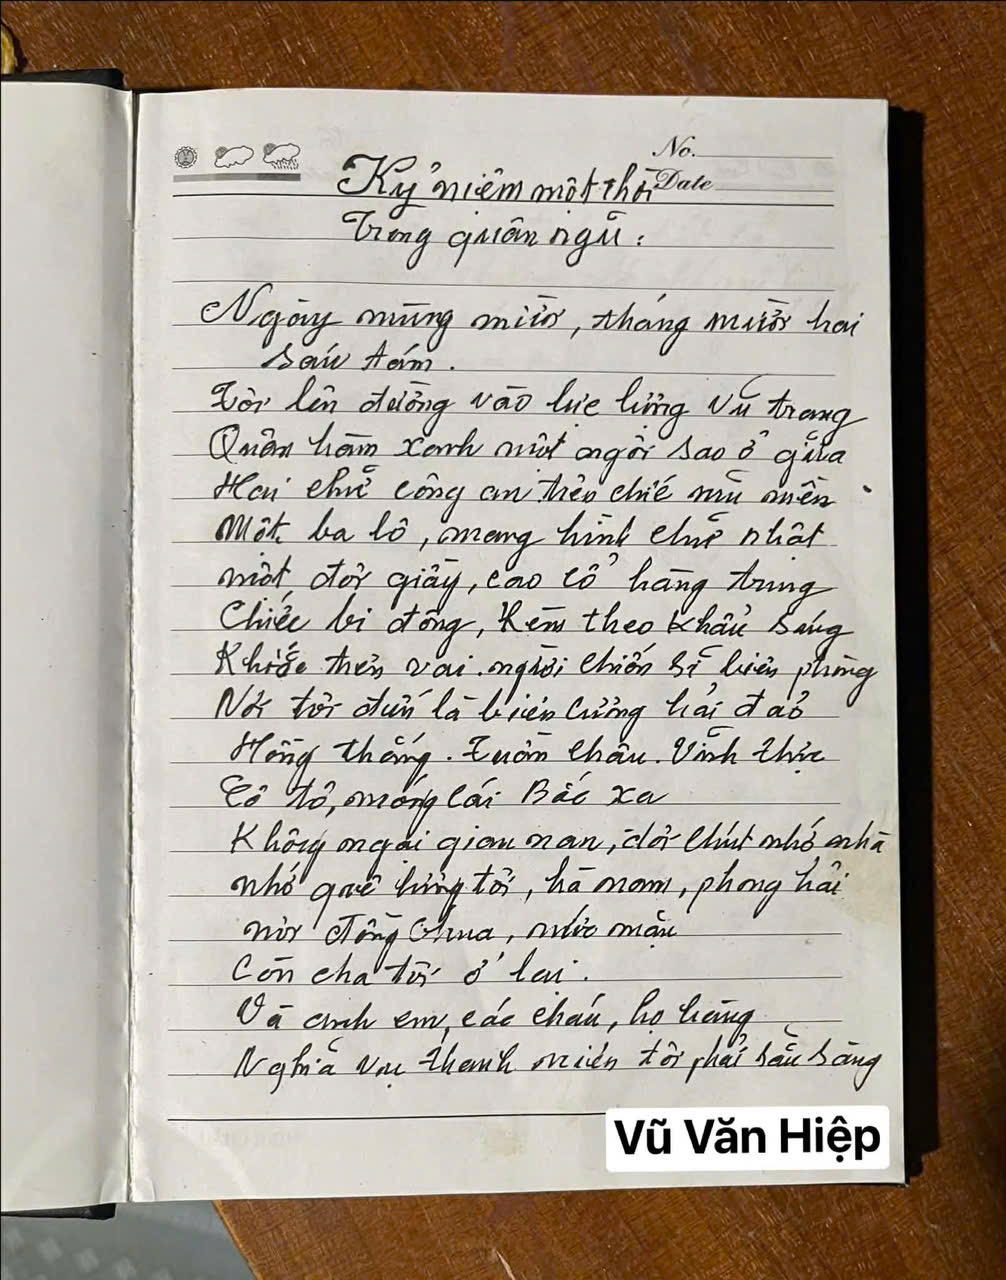 No.
Date
Kỷ niệm một thời
Trong quân ngũ :
Ngày mùng mười, tháng mười hai
sáu tám.
Tôi lên đường vào lực lượng vũ trang
Quân hàm xanh một ngôi sao ở giữa
Hai chữ công an trên chiếc mũ mền
Một ba lô, mang hình chữ nhật
một đôi giầy, cao cổ hàng trung
Chiếc bi đông, kèm theo khẩu súng
Khoác trên vai người chiến sĩ biên phòng
Nơi tôi đến là biên cương hải đảo
Hồng thắng. Tuần Châu. Vĩnh thực
Cô tô, móng cái Bắc xa
Không ngại gian nan, đôi chút nhớ nhà
nhớ quê hương tôi, hà nam, phong hải
nơi đồng chua, nước mặn
Còn cha tôi ở lại.
Và anh em, các cháu, họ hàng
Nghĩa vụ thanh niên tôi phải sẵn sàng
Vũ Văn Hiệp